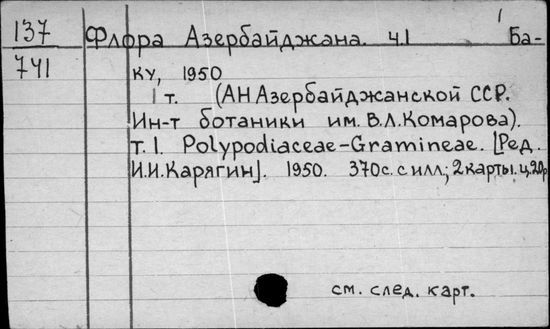 137 Флора Азербайджана. ч.1 Ба-
741 ку, 1950
1 т. (АН Азербайджанской ССР.
Ин-т ботаники им. В.Л.Комарова).
т.1. Polypodiaceae-Gramineae. [Ред.
И.И.Карягин]. 1950. 370с. с илл.; 2 карты. ц.20р
см. след. карт.